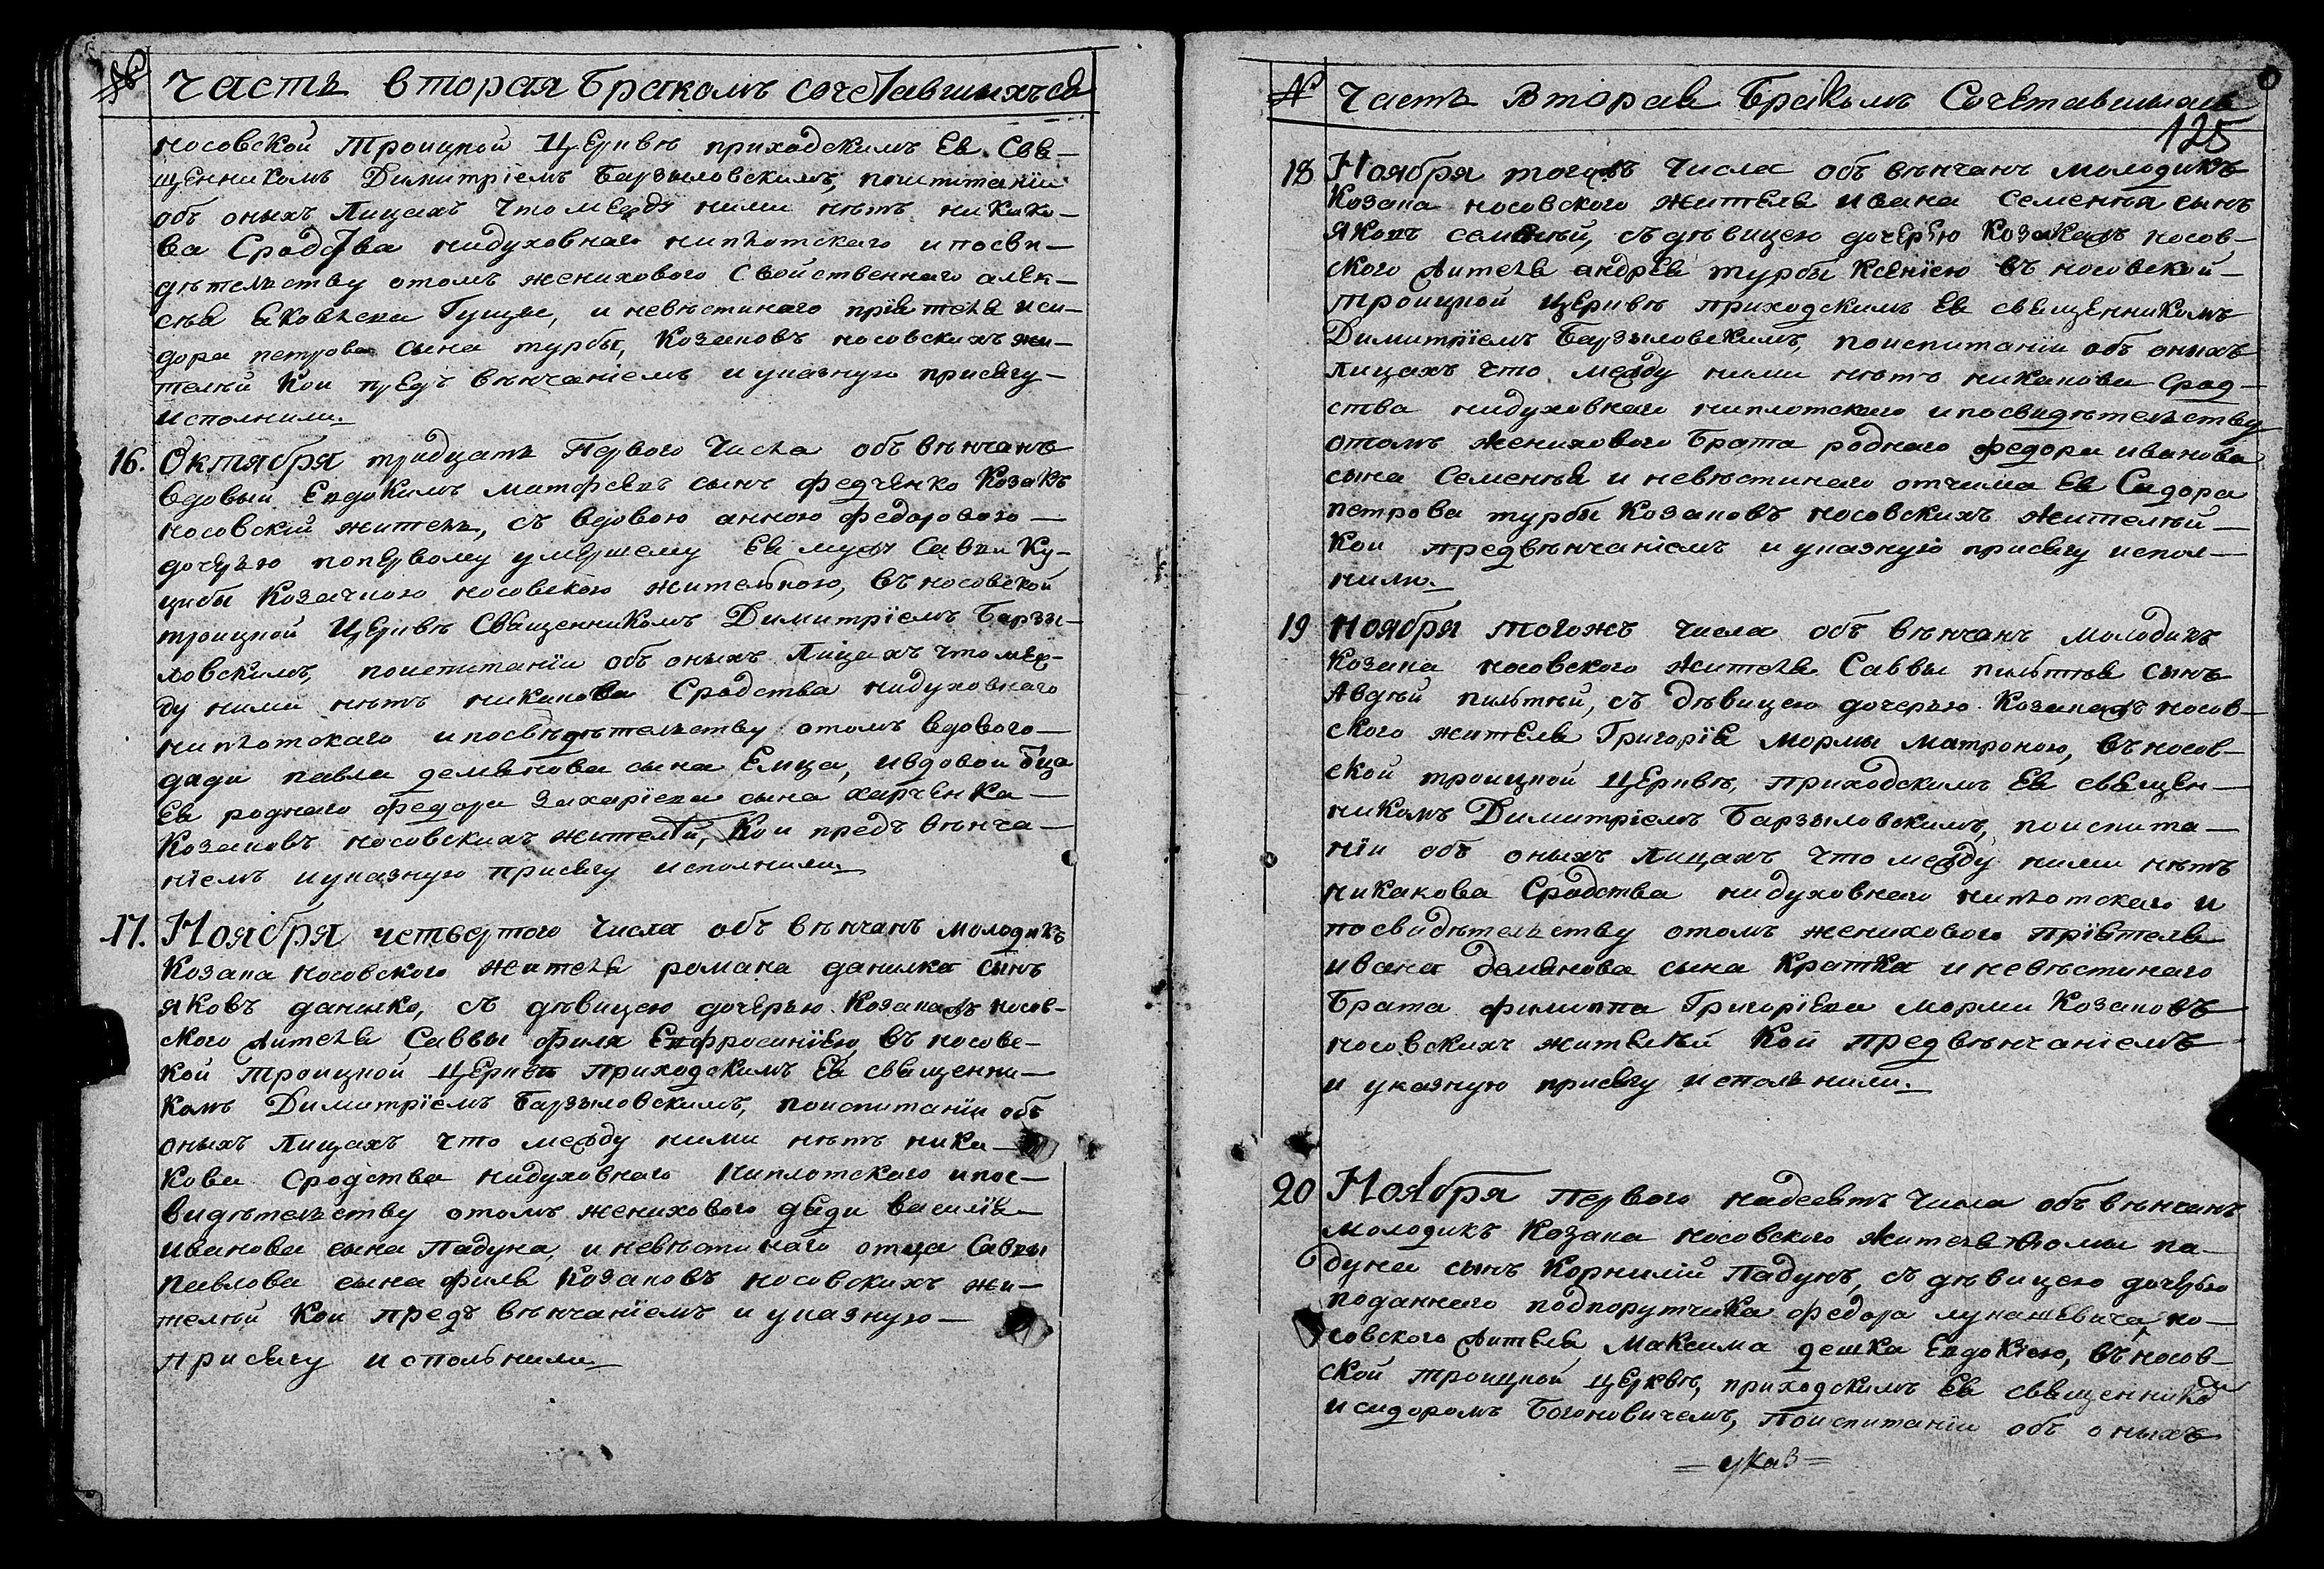 № Часть вторая Бракомъ сочетавшихъся
носовской Троицкой Церкве приходскимъ Ея Свя-
щенникомъ Димитріемъ Барзыловскимъ, поиспитаніи
объ оныхъ Лицахъ что между ними нѣтъ никако-
ва Сродства нидуховнаго ниплотскаго ипосви-
дѣтельству отомъ женихового Свойственнаго алек-
сѣя Яковлева Гущы, и невѣстинаго пріятеля иси-
дора петрова сына турбы, Козаковъ носовскихъ жи-
телѣй Кои предъ вѣнчаніемъ и указную присягу
исполнили.
16. Октября тридцать Первого Числа объ вѣнчанъ
вдовый Евдокимъ матфеевъ сынъ федченко Козакъ
носовскій житель, съ вдовою анною федоровою
дочерью попервому умершему Ея мужу Савки Ку-
цибы Козачкою носовскою жителькою, въ носовской
троицкой Церквѣ Священникомъ Димитріемъ Барзы-
ловскимъ, поиспитаніи объ оныхъ Лицахъ что меж-
ду ними нѣтъ никакова Сродства нидуховнаго
ниплотскаго ипосвѣдѣтельству отомъ вдового
дяди павла демянова сына Емца, ивдовои бца
Ея роднаго федора Захаріева сына харченка
Козаковъ носовскихъ жителѣй, Кои предъ вѣнча-
ніемъ иуказную присягу исполнили
17. Ноября четвертого Числа объ вѣнчанъ молодикъ
Козака носовского жителя романа данилка сынъ
яковъ данилко, съ дѣвицею дочерью Козакажъ носов-
ского жителя Саввы филя Евфросиніею, въ носовс-
кой троицкой Церкви приходскимъ Ея священни-
комъ Димитріемъ Барзыловскимъ, поиспитаніи объ
оныхъ Лицахъ что между ними нѣтъ ника-
кова Сродства нидуховнаго ниплотского ипос-
видѣтельству отомъ женихового дяди василія
иванова сына Падуна, и невѣстинаго отца Саввы
павлова сына филя Козаковъ носовскихъ жи-
телѣй Кои предъ вѣнчаніемъ и указную
присягу испольнили
№ Часть Вторая Бракомъ Сочетавшихся
125
18 Ноября тогожъ Числа объ вѣнчанъ молодикъ
Козака носовского жителя ивана семенѣя сынъ
Яковъ семенѣй, съ дѣвицею дочерью Козакажъ носов-
ского жителя андрея турбы Ксеніею въ носовской
троицкой Церквѣ приходскимъ Ея священникомъ
Димитріемъ Барзыловскимъ, поиспитаніи объ оныхъ
лицахъ что между ними нѣтъ никакова срод-
ства нидуховнаго ниплотскаго ипосвидѣтельству
отомъ женихового Брата роднаго федора иванова
сына Семенѣя и невѣстинаго отчима Ея Сидора
петрова турбы Козаковъ носовскихъ жителѣй
Кои предвѣнчаніемъ и указную присягу испол-
нили.
19 Ноября тогожъ числа объ вѣнчанъ молодикъ
Козака носовского жителя Саввы пильтѣя сынъ
Авдѣй пильтѣй, съ дѣвицею дочерью Козакажъ носов-
ского жителя Григорія мормы матроною, въ носов-
ской троицкой Церквѣ, приходскимъ Ея священ-
никомъ Димитріемъ Барзыловскимъ, поиспита-
ніи объ оныхъ Лицахъ что между ними нѣтъ
никакова Сродства нидуховнаго ниплотскаго и
посвидѣтельству отомъ женихового пріятеля
ивана демянова сына Кратка и невѣстинаго
Брата филиппа Григоріева мормы Козаковъ
носовскихъ жителѣй Кои предвѣнчаніемъ
и указную присягу испольнили.
20 Ноября Первого надесять Числа объ вѣнчанъ
молодикъ Козака носовского жителя Фомы па-
дуна сынъ Корнилій Падунъ, съ дѣвицею дочерью
поданнаго подпорутчика федора лукашевича, но-
совского жителя Максима дешка Евдокіею, въ носов-
ской троицкой Церквѣ, приходскимъ Ея священникомъ
исидоромъ Богоновичемъ, Поиспитаніи объ оныхъ
= указ =